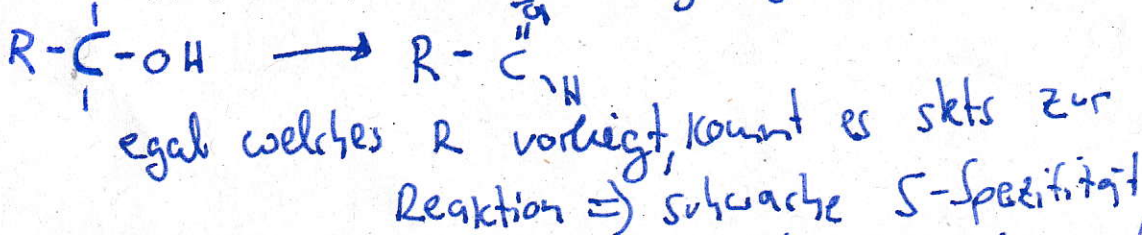 R-C-OH → R-C
O
H
egal welches R vorliegt, kommt es stets zur
Reaktion => schwache S-Spezifität